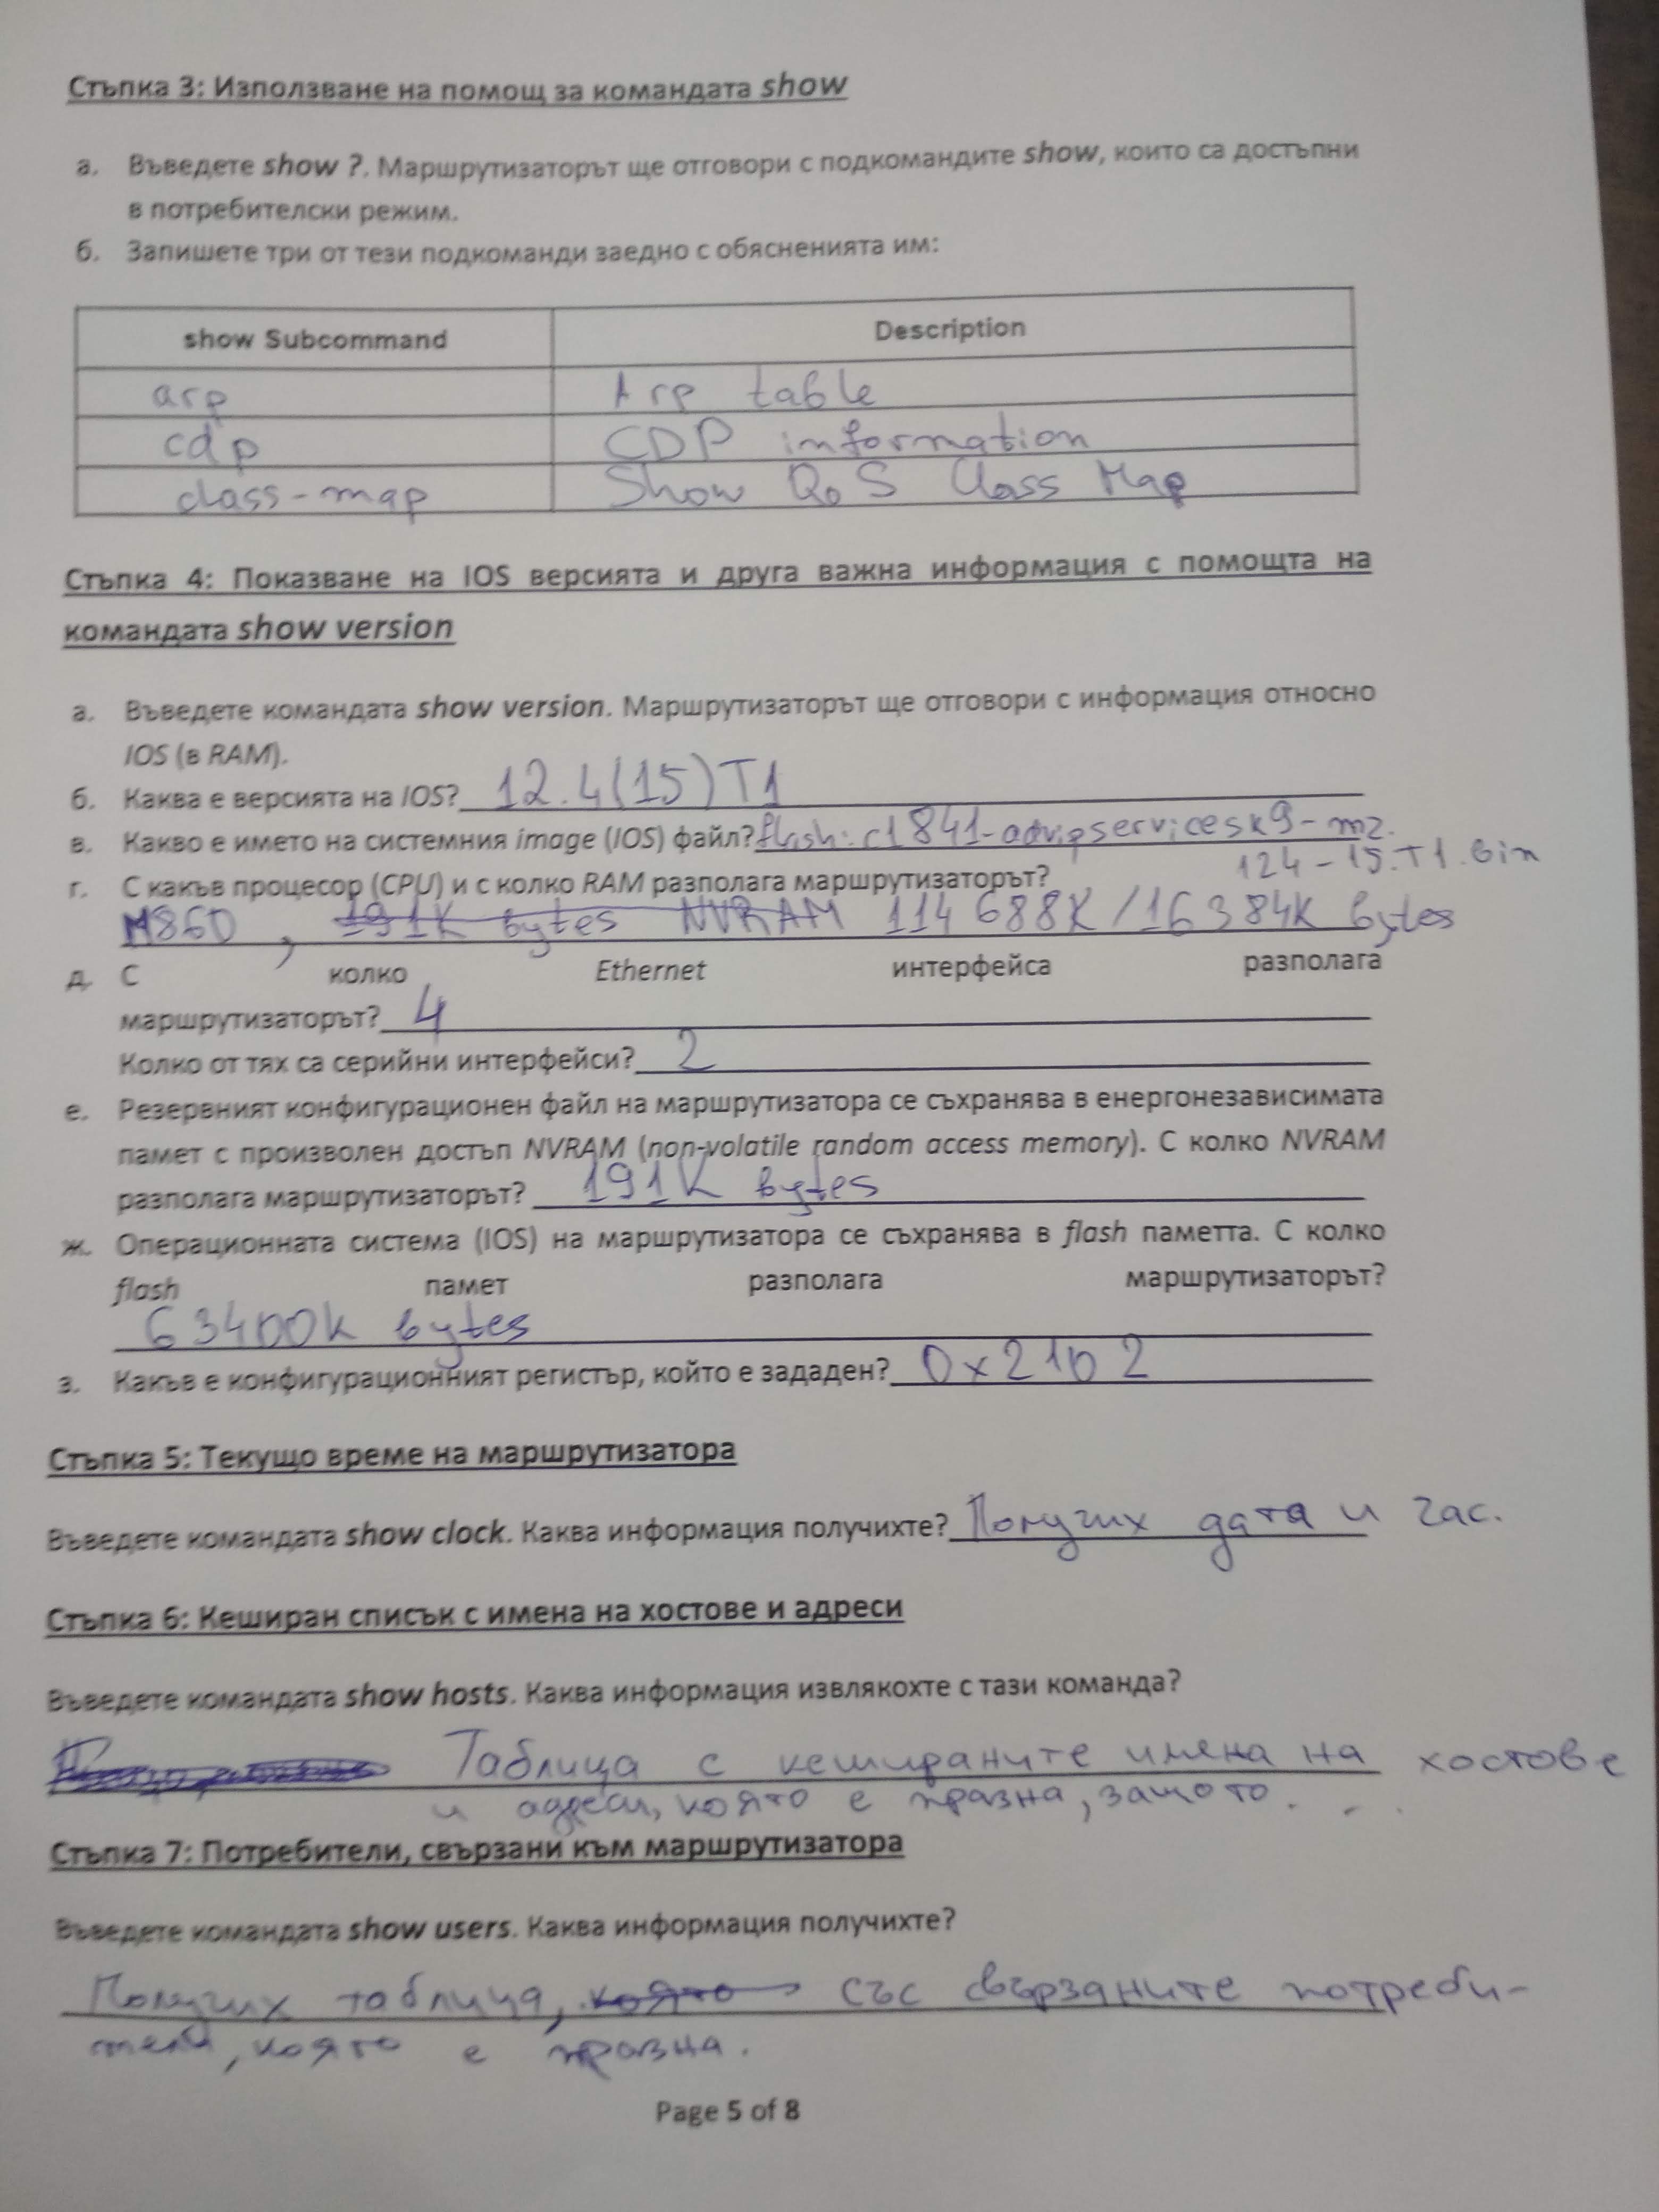 Стъпка 3: Използване на помощ за командата show
а. Въведете show ?. Маршрутизаторът ще отговори с подкомандите show, които са достъпни
в потребителски режим.
б. Запишете три от тези подкоманди заедно с обясненията им:
show Subcommand Description
arp Arp table
cdp CDP information
class-map Show QoS Class Map
Стъпка 4: Показване на IOS версията и друга важна информация с помощта на
командата show version
а. Въведете командата show version. Маршрутизаторът ще отговори с информация относно
IOS (в RAM).
б. Каква е версията на IOS? 12.4(15)T1
в. Какво е името на системния image (IOS) файл? flash:c1841-advipservicesk9-mz.
124-15.T1.bin
г. С какъв процесор (CPU) и с колко RAM разполага маршрутизаторът?
M860, 191K bytes NVRAM 114688K/16384K bytes
д. С колко Ethernet интерфейса разполага
маршрутизаторът? 4
Колко от тях са серийни интерфейси? 2
е. Резервният конфигурационен файл на маршрутизатора се съхранява в енергонезависимата
памет с произволен достъп NVRAM (non-volatile random access memory). С колко NVRAM
разполага маршрутизаторът? 191K bytes
ж. Операционната система (IOS) на маршрутизатора се съхранява в flash паметта. С колко
flash памет разполага маршрутизаторът?
63400K bytes
з. Какъв е конфигурационният регистър, който е зададен? 0x2102
Стъпка 5: Текущо време на маршрутизатора
Въведете командата show clock. Каква информация получихте? Получих дата и час.
Стъпка 6: Кеширан списък с имена на хостове и адреси
Въведете командата show hosts. Каква информация извлякохте с тази команда?
Таблица с кешираните имена на хостове
и адреси, която е празна, защото...
Стъпка 7: Потребители, свързани към маршрутизатора
Въведете командата show users. Каква информация получихте?
Получих таблица, която със свързаните потреби-
тели, която е празна.
Page 5 of 8